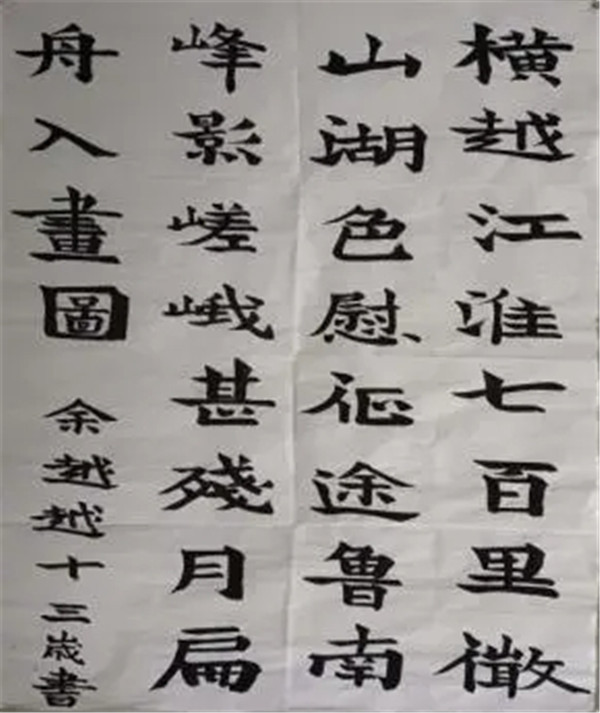 横越江淮七百里微
山湖色慰征途鲁南
峰影嵯峨甚殘月扁
舟入畫圖 余越越十三歲書